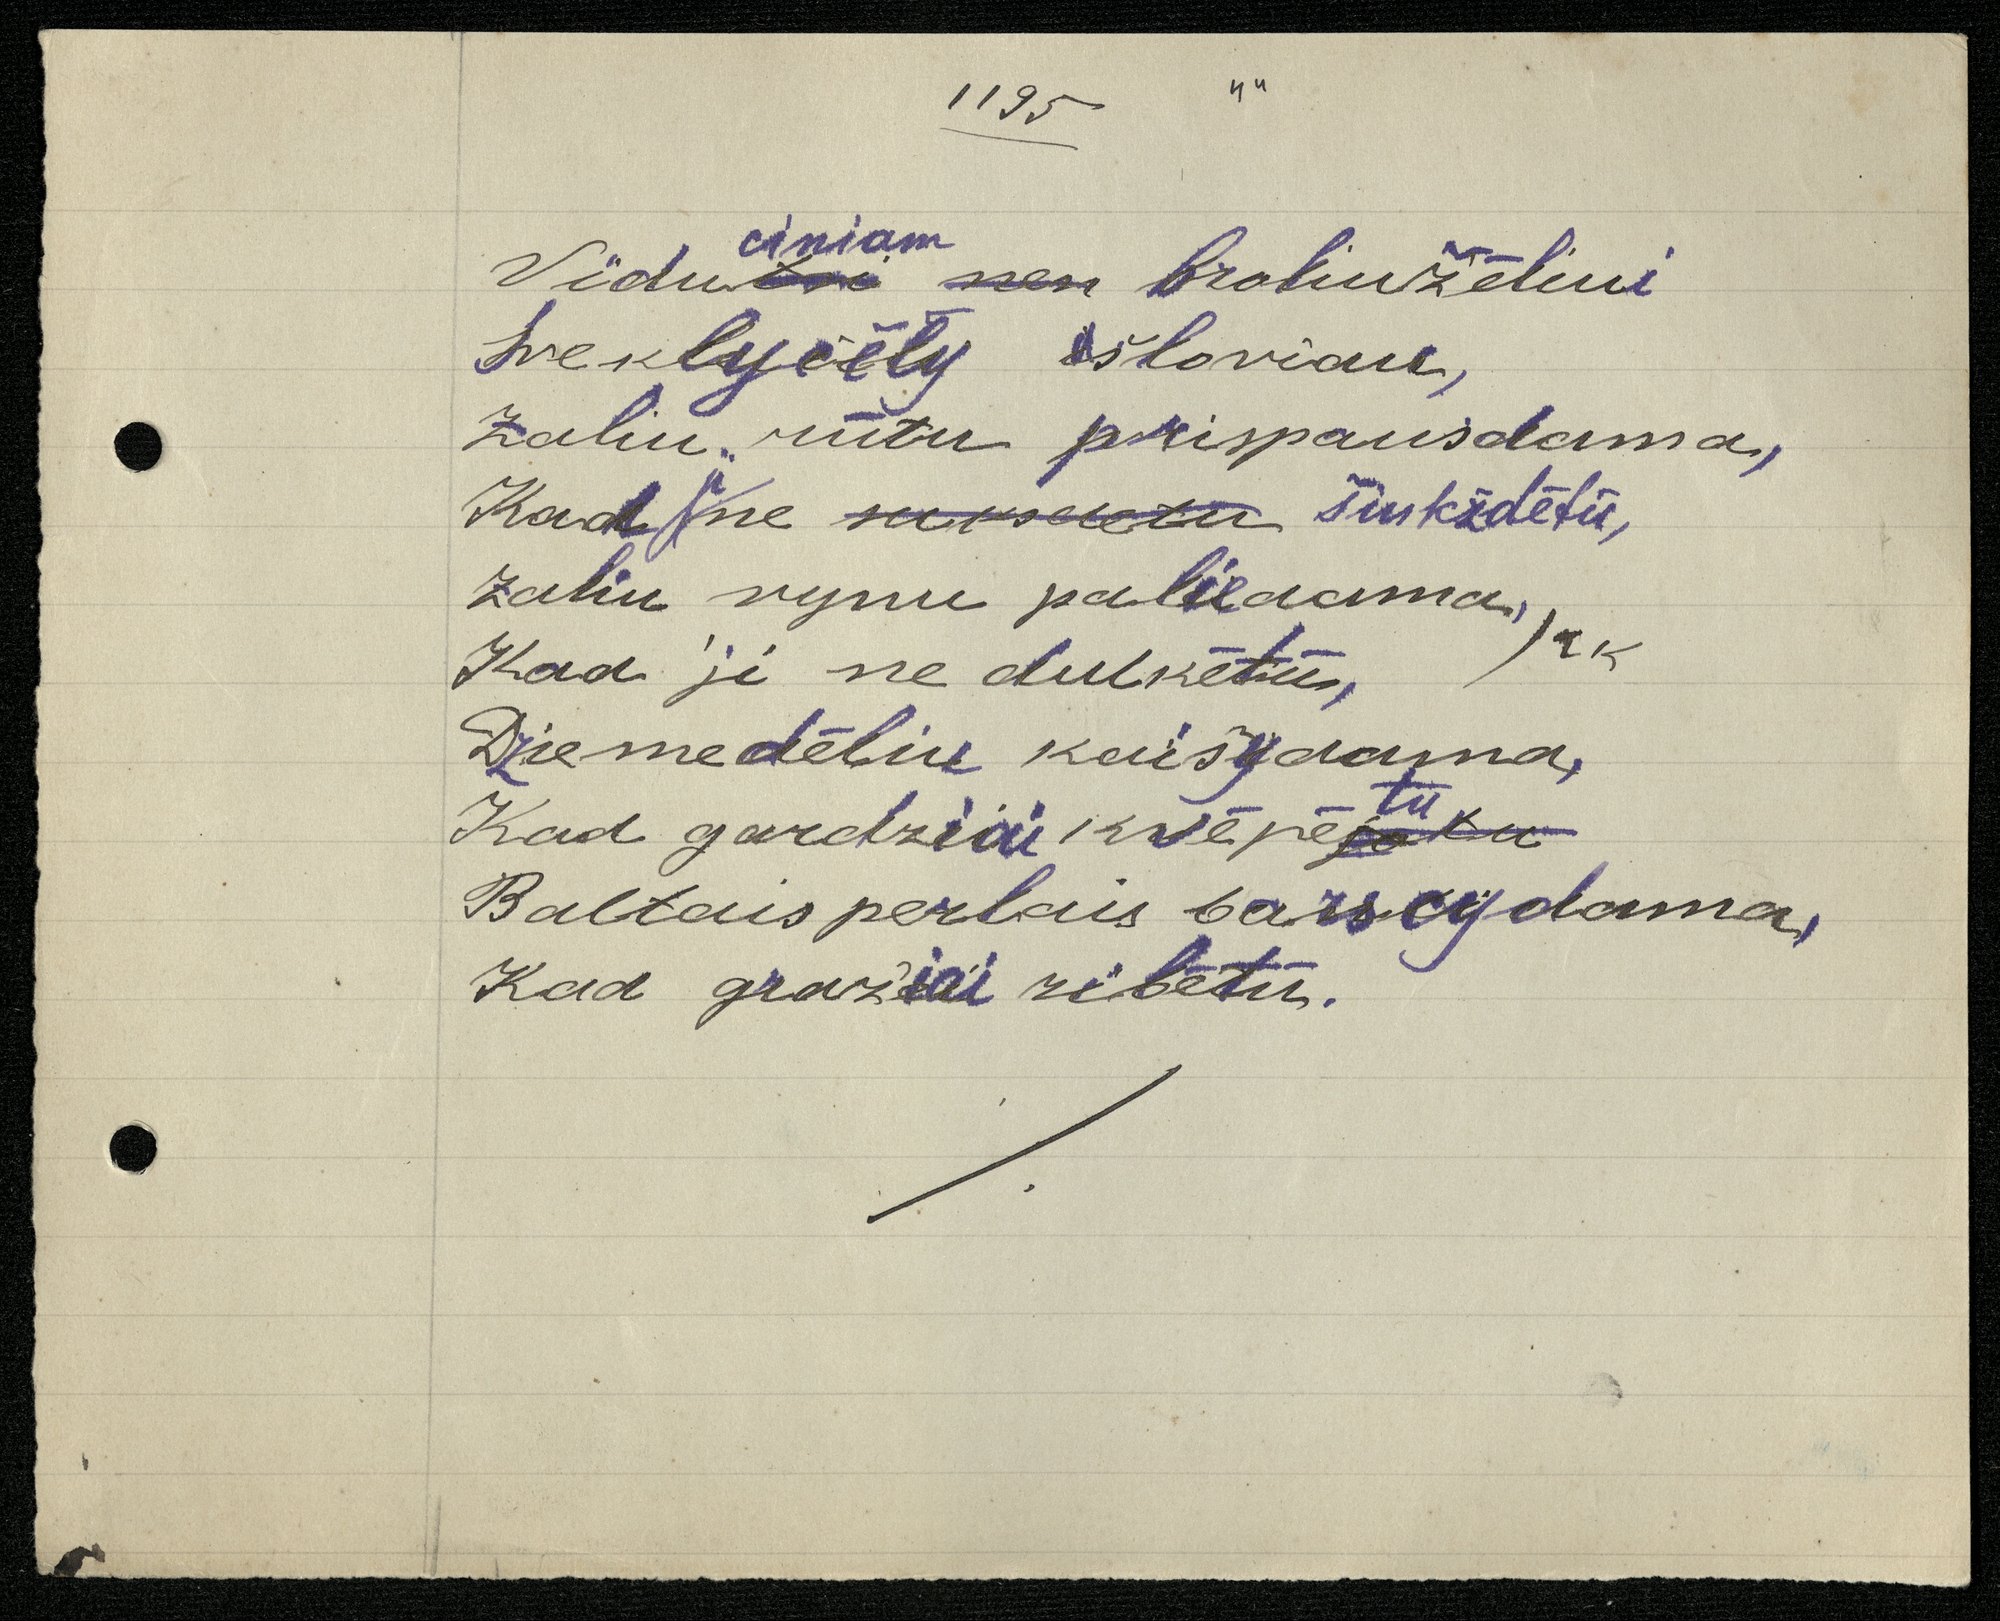 1195 "
Viduciniam broliužēliui
Sveklyčēly išloviau,
Žaliu rūtu prispausdama,
Kad ji ne šiukždētū,
Žaliu vynu paliedama,
Kad ji ne dulkētū,
Dziemedēliu kaišydama,
Kad gardziai kvēpētū
Baltais perlais barscydama,
Kad graziai zibētū.